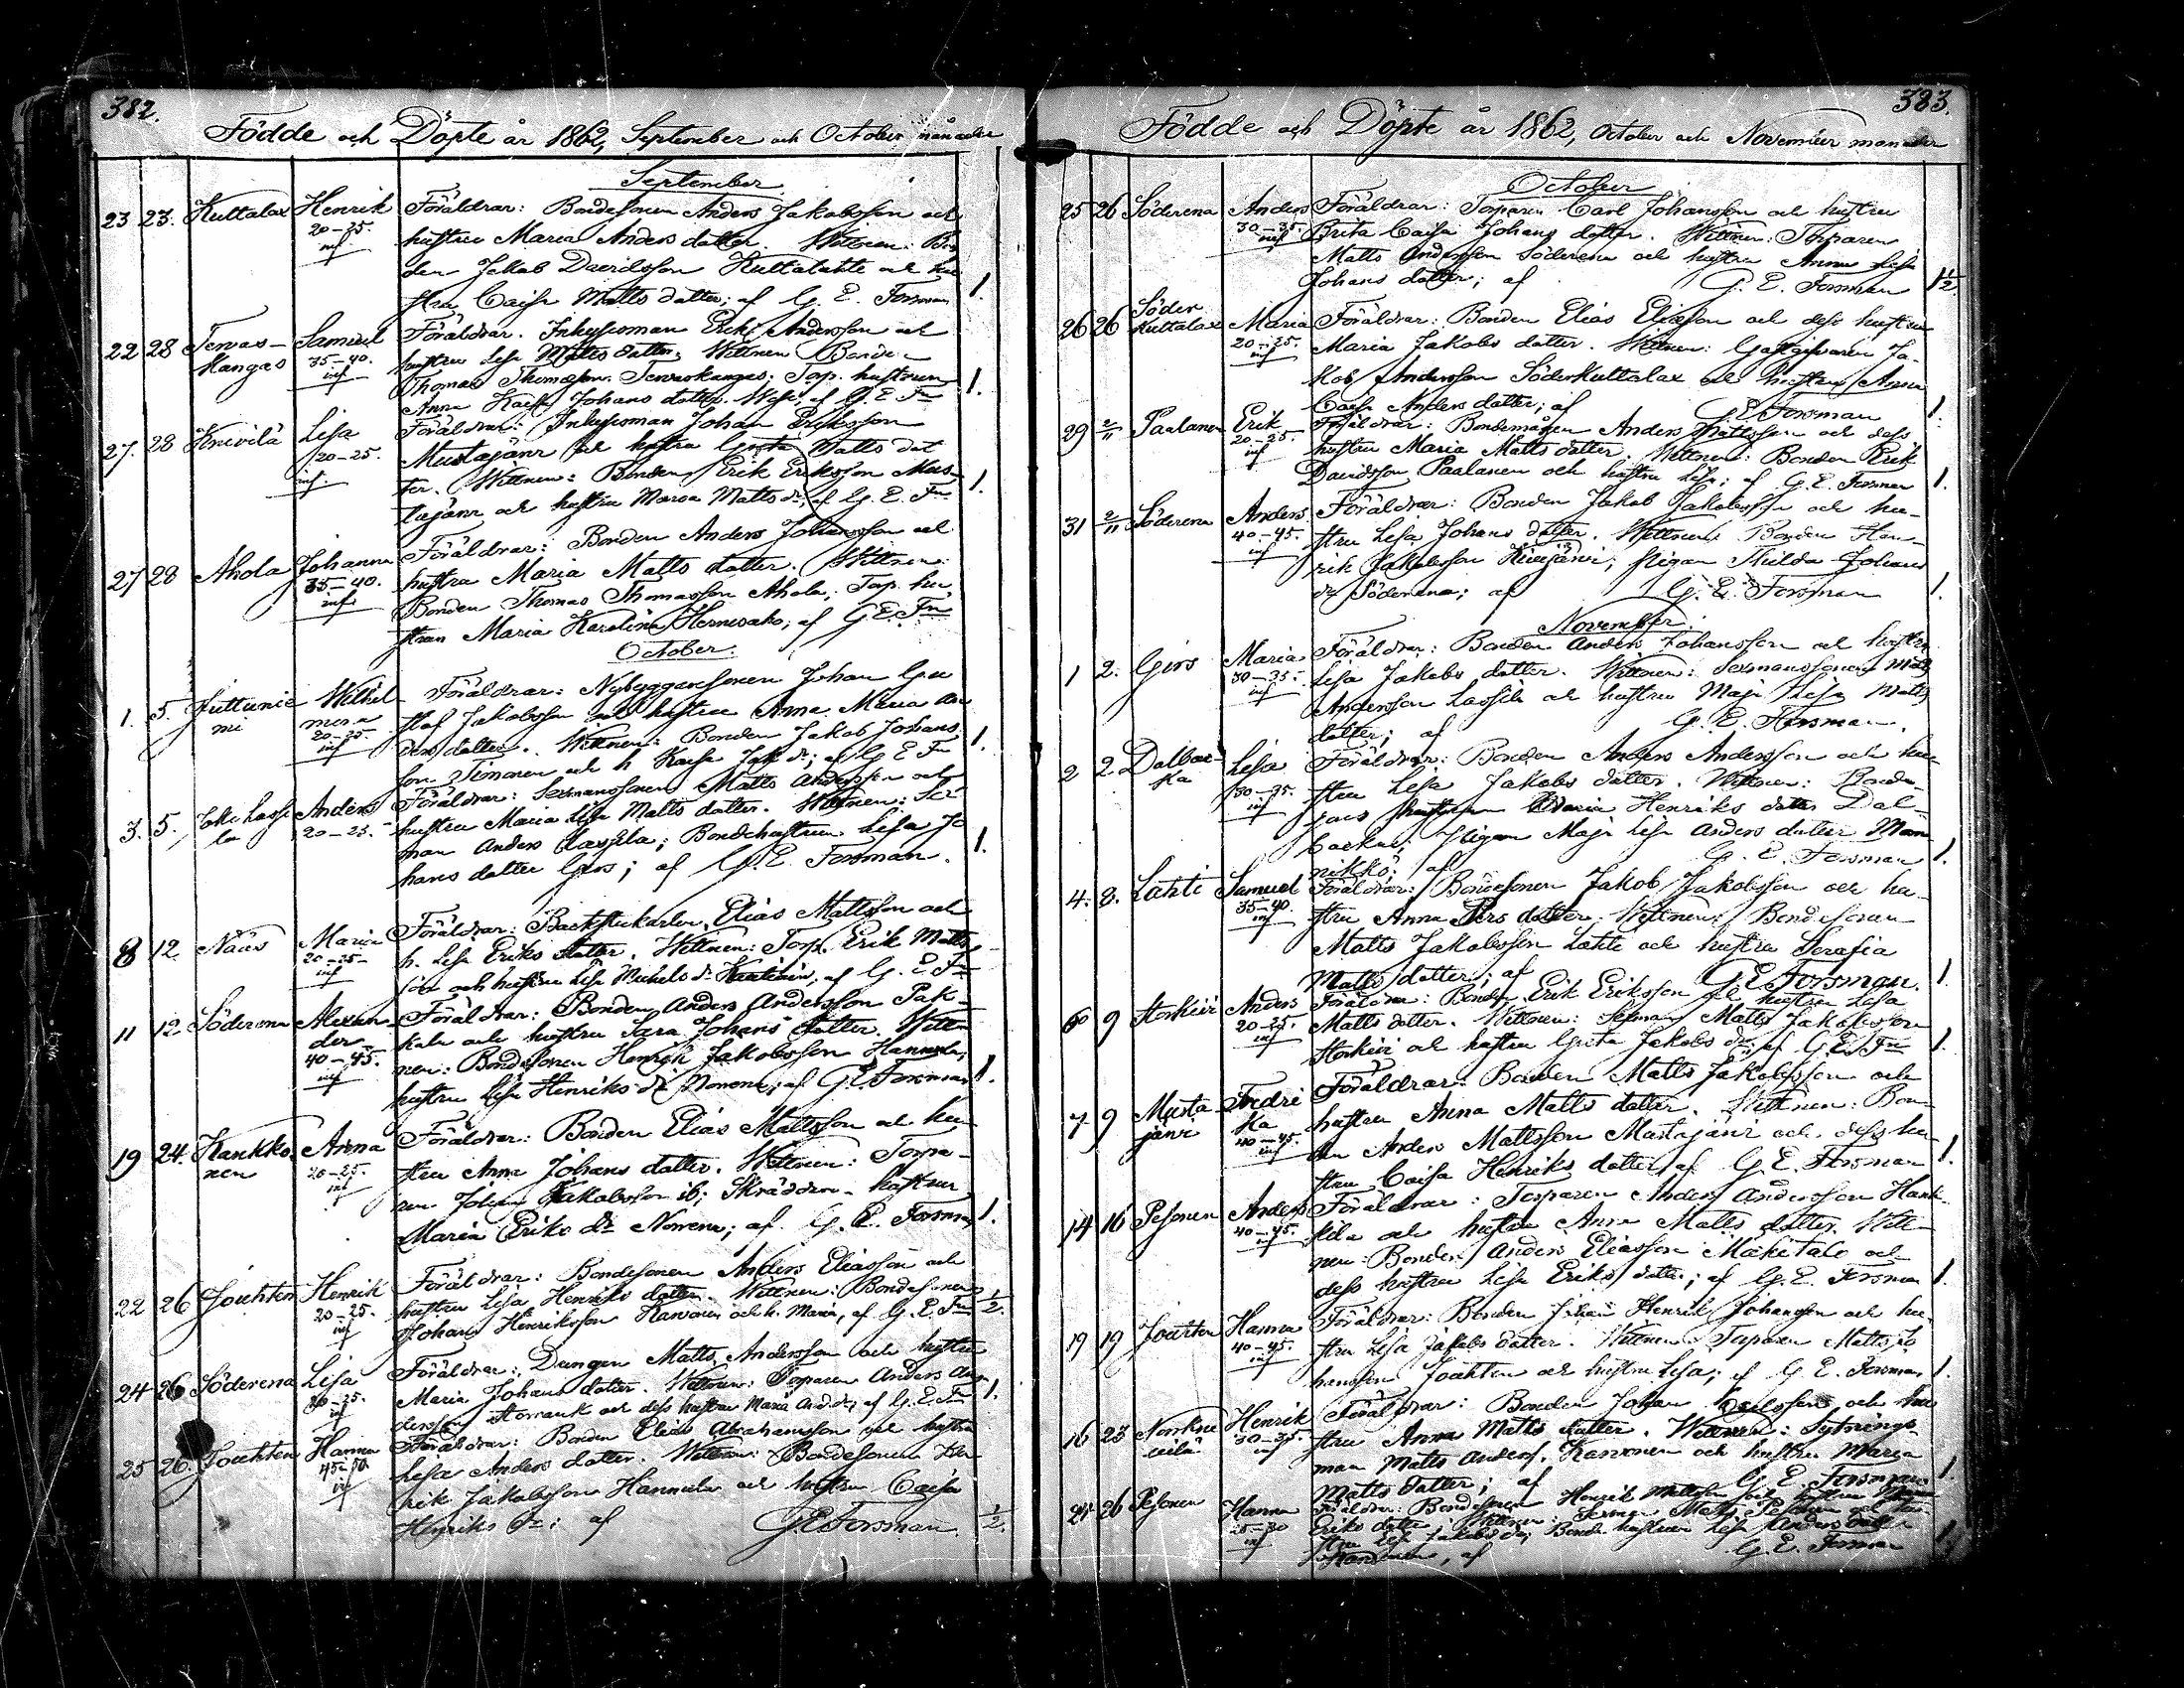 382.
Födde och Döpte år 1862, September och October månader
September
23 23. Kuttalax Henrik Föräldrar: Bondesonen Anders Jakobsson och
20-25. hustru Maria Anders datter. Wittnen: Bon
inf den Jakob Davidsson Kuttalahti och hu
stru Caisa Matts datter; af G. E. Forsman 1.
22 28 Terwas- Samuel Föräldrar. Inhysesman Erik Andersson och
kangas 35-40. hustru Lisa Matts datter; Wittnen Bonden
inf Thomas Thomasson Terwaskangas; Torp. hustrun
Anna Kaisa Johans datter; af G. E. Fn 1.
27. 28 Knivilä Lisa Föräldrar: Inhysesman Johan Eriksson
20-25. Mustajärvi och hustru Greta Matts dat
inf. ter. Wittnen: Bonden Erik Eriksson Mus-
tajärvi och hustru Maria Matts dr; af G. E. Fn 1.
27 28 Ahola Johanna Föräldrar: Bonden Anders Johansson och
35-40. hustru Maria Matts datter. Wittnen:
inf Bonden Thomas Thomasson Ahola; Torp. hu
strun Maria Karolina Hernesaho; af G E. Fn
October.
1. 5. Juttunie Wilhel- Föräldrar: Nybyggaresonen Johan Gu
mi mina staf Jakobsson och hustru Anna Maria An
20-25. ders datter. Wittnen: Bonden Jakob Johans
inf son Timonen och h Kaisa Jak dr; af G E Fn 1.
3. 5. Joki Lassi Anders Föräldrar: Sexmanssonen Matts Andersson och
la 20-25. hustru Maria Lisa Matts datter. Wittnen: Sex
man Anders Lassila; Bondehustrun Lisa Jo
hans datter Girs; af G. E. Forsman. 1.
8 12. Nääs Maria Föräldrar: Backstukarlen Elias Mattsson och
20-25- h. Lisa Eriks datter. Wittnen: Torp. Erik Matts
inf son och hustru Lisa Michels dr; af G. E. Fn
11 12. Söderena Alexan- Föräldrar: Bonden Anders Andersson Pak-
der kala och hustru Sara Johans datter. Witt-
40-45. nen: Bondesonen Henrik Jakobsson Hannula;
inf hustru Lisa Henriks dr Norrena; af G. E. Forsman 1.
19 24. Kankko- Anna Föräldrar: Bonden Elias Mattsson och hu
nen 20-25. stru Anna Johans datter. Wittnen: Torpa-
inf ren Johan Jakobsson ib; Skräddare-hustrun
Maria Eriks dr Norrena; af G. E. Forsman 1.
22 26 Jouhten Henrik Föräldrar: Bondesonen Anders Eliasson och
20-25. hustru Lisa Henriks datter. Wittnen: Bondesonen
inf Johan Henriksson Karvonen och h. Maria, af G. E. Fn 1/2.
24 26 Söderena Lisa Föräldrar: Drengen Matts Andersson och hustru
20-25. Maria Johans datter. Wittnen: Torparen Anders An
inf dersson och dess hustru Maria And. dr; af G. E. Fn 1.
25 26. Jouhten Hanna Föräldrar: Bonden Elias Abrahamsson och hustru
45-50 Lisa Anders datter. Wittnen: Bondesonen Hen
inf rik Jakobsson Hannula och hustru Caisa
Henriks dr: af G. E. Forsman. 1/2.
383.
Födde och Döpte år 1862, October och November månader
October
25 26 Söderena Anders Föräldrar: Torparen Carl Johansson och hustru
30-35. Brita Caisa Johans datter. Wittnen: Torparen
inf Matts Andersson Söderena och hustru Anna Lisa
Johans datter; af G. E. Forsman 1 1/2.
26 26 Söder Kuttalax Maria Föräldrar: Bonden Elias Eliasson och dess hustru
20-25. Maria Jakobs datter. Wittnen: Gästgifvaren Ja-
inf kob Andersson Söderkuttalax och hustru Anna
Caisa Anders datter; af G. E. Forsman 1.
29 2/11 Paalanen Erik Föräldrar: Bondemågen Anders Mattsson och dess
20-25. hustru Maria Matts datter. Wittnen: Bonden Erik
inf Davidsson Paalanen och hustru Lisa; af G. E. Forsman 1.
31 2/11 Söderena Anders Föräldrar: Bonden Jakob Jakobsson och hu-
40-45. stru Lisa Johans datter. Wittnen: Bonden Hen-
inf rik Jakobsson; pigan Thilda Johans
dr Söderena; af G. E. Forsman 1.
November.
1 2. Girs Maria Föräldrar: Bonden Anders Johansson och hustru
30-35. Lisa Jakobs datter. Wittnen: Sexmanssonen Matts
inf Andersson Lassila och hustru Maja Lisa Matts
datter; af G. E. Forsman.
2 2 Dalbac- Lisa Föräldrar: Bonden Anders Andersson och hu
ka 30-35. stru Lisa Jakobs datter. Wittnen: Bonde-
inf hustrun Maria Henriks datter Dal-
backa; pigan Maja Lisa Anders datter Man
nikkö; af G. E. Forsman 1.
4. 8. Lahti Samuel Föräldrar: Bondesonen Jakob Jakobsson och hu-
35-40. stru Anna Pers datter. Wittnen: Bondesonen
inf Matts Jakobsson Lahti och hustru Serafia
Matts datter; af G. E. Forsman. 1.
6 9 Storkivi Anders Föräldrar: Bonden Erik Eriksson och hustru Lisa
20-25. Matts datter. Wittnen: Sexman Matts Jakobsson
inf Storkivi och hustru Greta Jakobs dr; af G. E. Fn 1.
7 9 Musta Fredri Föräldrar: Bonden Matts Jakobsson och
järvi ka hustru Anna Matts datter. Wittnen: Bon-
40-45. den Anders Mattsson Mustajärvi och dess hu-
inf stru Caisa Henriks datter; af G. E. Forsman 1.
14 16 Pesonen Anders Föräldrar: Torparen Anders Andersson Hank-
40-45. kila och hustru Anna Matts datter. Witt-
inf nen: Bonden Anders Eliasson Mäkitalo och
dess hustru Lisa Eriks datter; af G. E. Forsman 1.
19 19 Jouhten Hanna Föräldrar: Bonden Johan Henrik Johansson och hu-
40-45. stru Lisa Jakobs datter. Wittnen: Torparen Matts Jo
inf hansson Jouhten och hustru Lisa; af G. E. Forsman 1.
16 23 Henrik Föräldrar: Bonden Johan och hu
30-35. stru Anna Matts datter. Wittnen: Sytnings-
inf man Matts Anders. Karvonen och hustru Maria
Matts datter; af G. E. Forsman 1.
24 26 Pesonen Hanna Föräldrar: Bondesonen Henrik Mattsson och hustru
25-30 Eriks datter. Wittnen: Sexman Matts Pesonen och hu-
inf stru Lisa Jakobs dr; Bonde hustrun Lisa Anders datter
af G. E. Forsman 1.